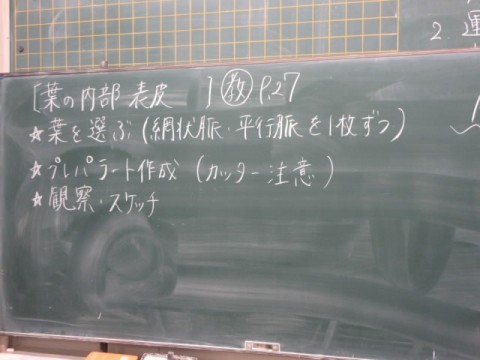 [葉の内部 表皮 ] 教 P.27
★葉を選ぶ(網状脈・平行脈を1枚ずつ)
★プレパラート作成 (カッター注意)
★観察・スケッチ
2. 運